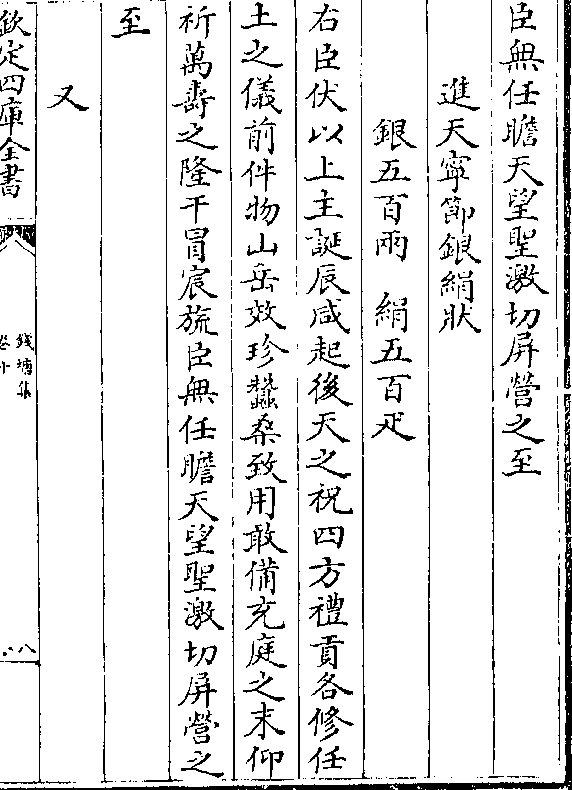 臣無任瞻天望聖激切屏營之至
進天寧節銀絹狀
銀五百兩　絹五百疋
右臣伏以上主誕辰咸起後天之祝四方禮貢各修任
土之儀前件物山岳效珍蠶桑致用敢備充庭之末仰
祈萬壽之隆干冒宸旒臣無任瞻天望聖激切屏營之
至
又
欽定四庫全書
錢塘集
卷十
八